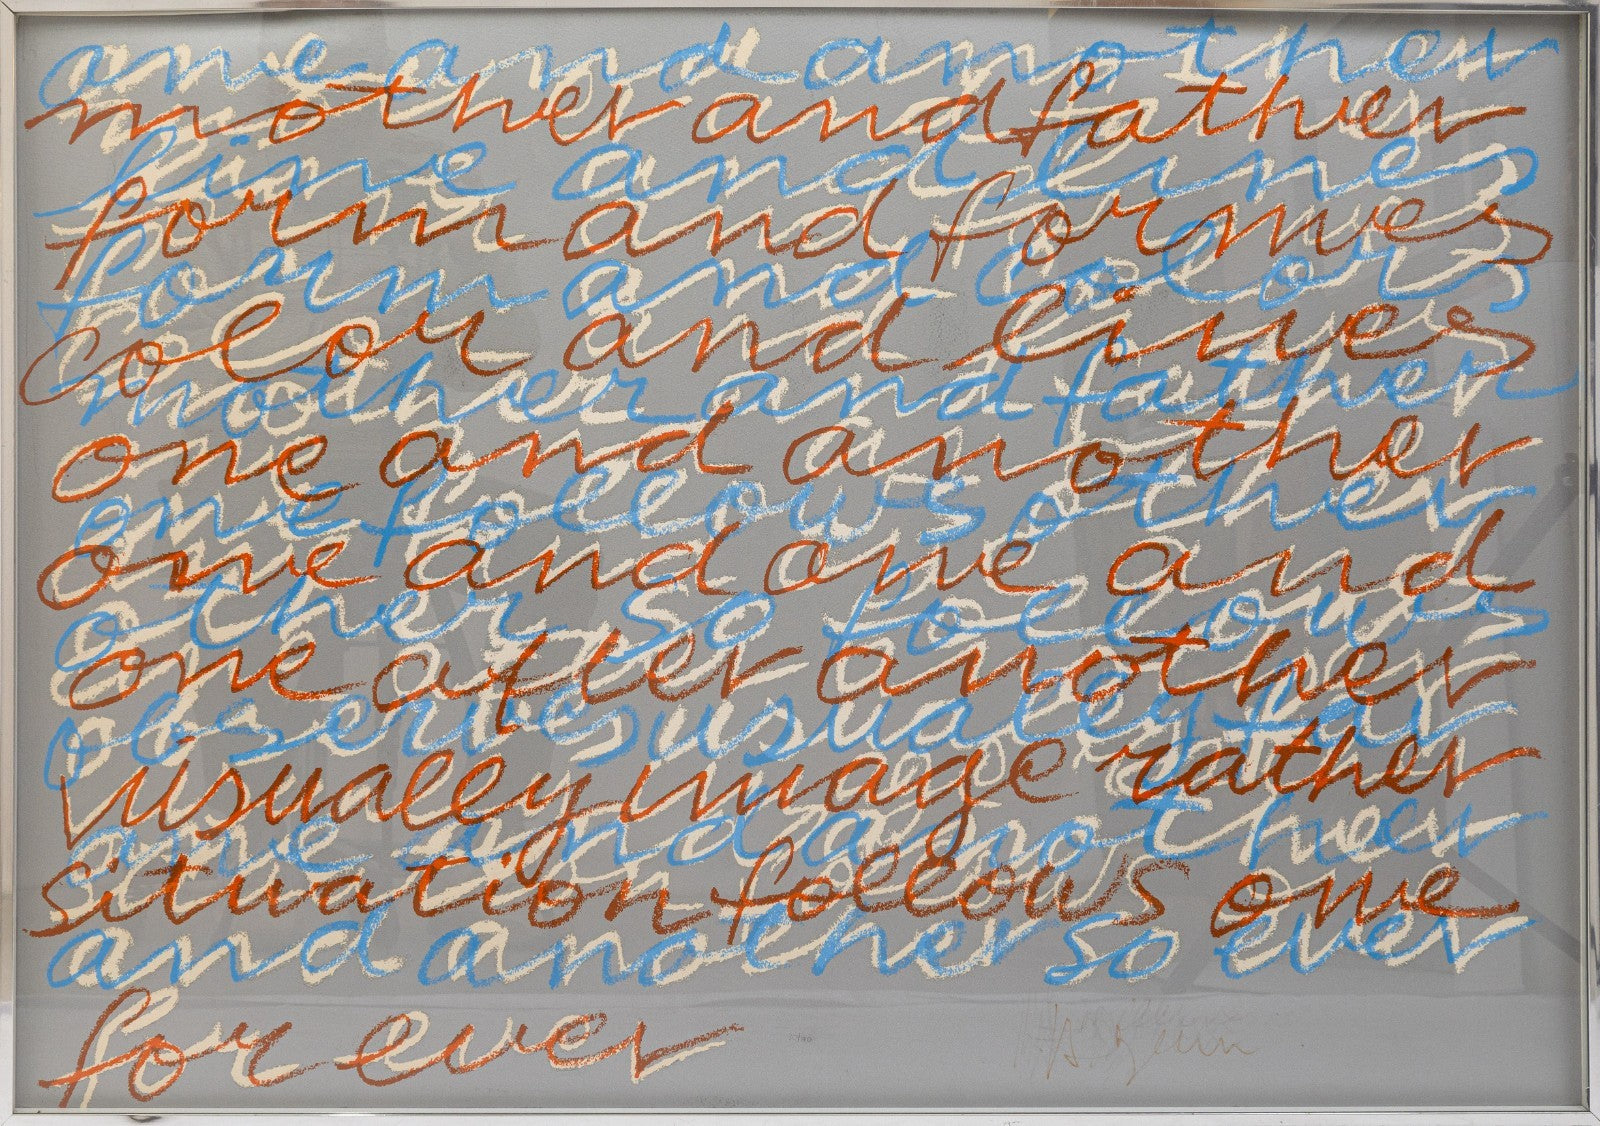 one and another
mother and father
line and lines
form and formes
form and colors
color and lines
mother and father
one and another
one follows other
one and one and
other so follows
one after another
observes usually far
visually image rather
one and another
situation follows one
and another so ever
for ever